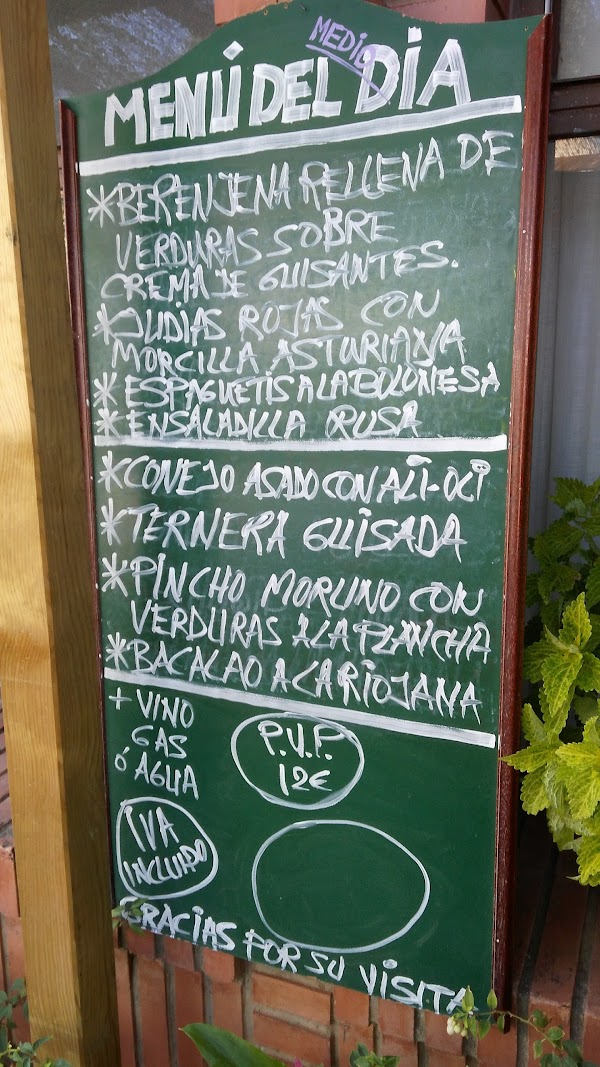 MEDIO
MENÚ DEL DÍA
*BERENJENA RELLENA DE
VERDURAS SOBRE
CREMA DE GUISANTES.
*JUDIAS ROJAS CON
MORCILLA ASTURIANA
*ESPAGUETIS A LA BOLOÑESA
*ENSALADILLA RUSA
*CONEJO ASADO CON ALI-OLI
*TERNERA GUISADA
*PINCHO MORUNO CON
VERDURAS A LA PLANCHA
*BACALAO A LA RIOJANA
+ VINO
GAS
ó AGUA
P.V.P.
12€
IVA
INCLUIDO
GRACIAS POR SU VISITA